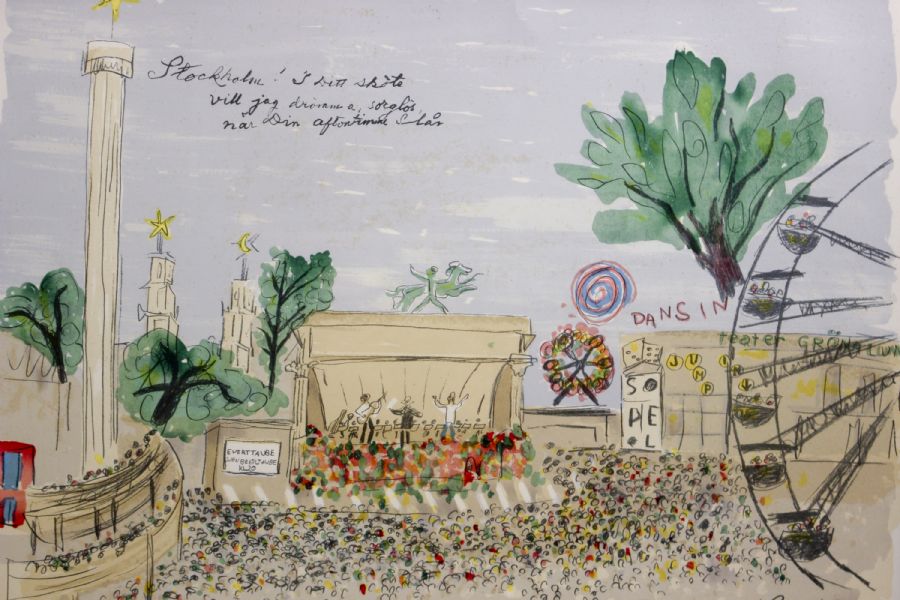 Stockholm! I ditt sköte
vill jag drömma, sorglös,
när Din aftontimme slår
DANS IN
teater GRÖNA LUN
JUMP IN
SPEL
EVERT TAUBE
KL 20